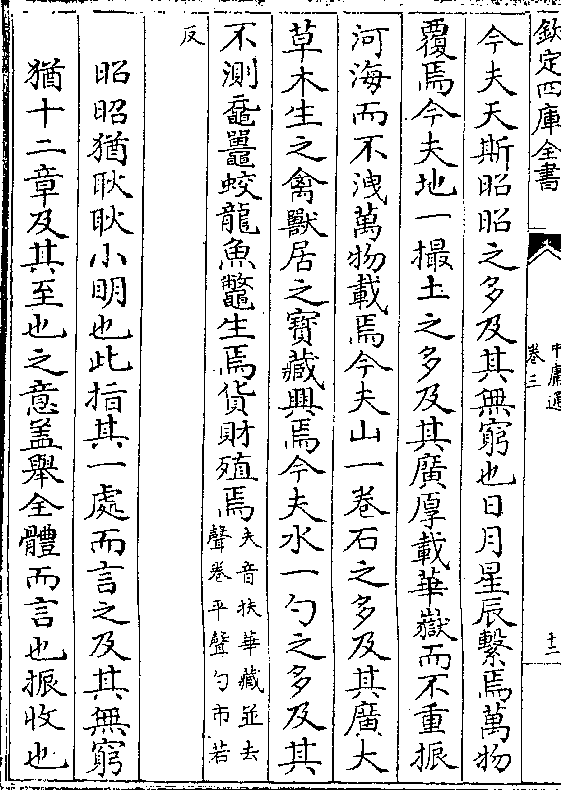 欽定四庫全書
中庸通
卷三
十二
今夫天斯昭昭之多及其無窮也日月星辰繫焉萬物
覆焉今夫地一撮土之多及其廣厚載華嶽而不重振
河海而不洩萬物載焉今夫山一卷石之多及其廣大
草木生之禽獸居之寶藏興焉今夫水一勺之多及其
不測黿鼉蛟龍魚鼈生焉貨財殖焉
夫音扶華藏並去
聲卷平聲勺市若
反
昭昭猶耿耿小明也此指其一處而言之及其無窮
猶十二章及其至也之意盖舉全體而言也振收也